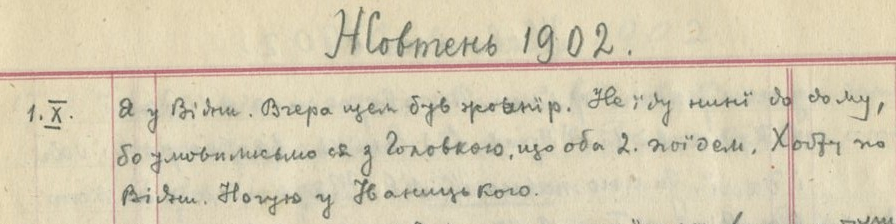 Жовтень 1902.
1.X. Я у Відни. Вчера щем був жовнір. Не їду нинї до дому,
бо умовилисьмо ся з Головкою, що оба 2. поїдем. Ходжу по
Відни. Ночую у Іваницького.